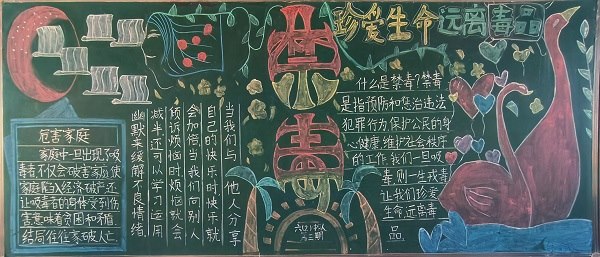 珍爱生命 远离毒品
禁毒
危害家庭
家庭中一旦出现了吸
毒者不仅会破害家庭,使
家庭陷入经济破产,还
让吸毒者的身体受到伤
害意味着贫困和矛盾
结局往往家破人亡
当我们与他人分享
自己的快乐时快乐就
会加倍当我们向别人
倾诉烦恼时烦恼就会
减半还可以学习运用
幽默来缓解不良情绪
什么是禁毒?禁毒
是指预防和惩治违法
犯罪行为,保护公民的身
心健康,维护社会秩序
的工作。我们一旦吸
毒,则一生戒毒
让我们珍爱
生命远离毒
品